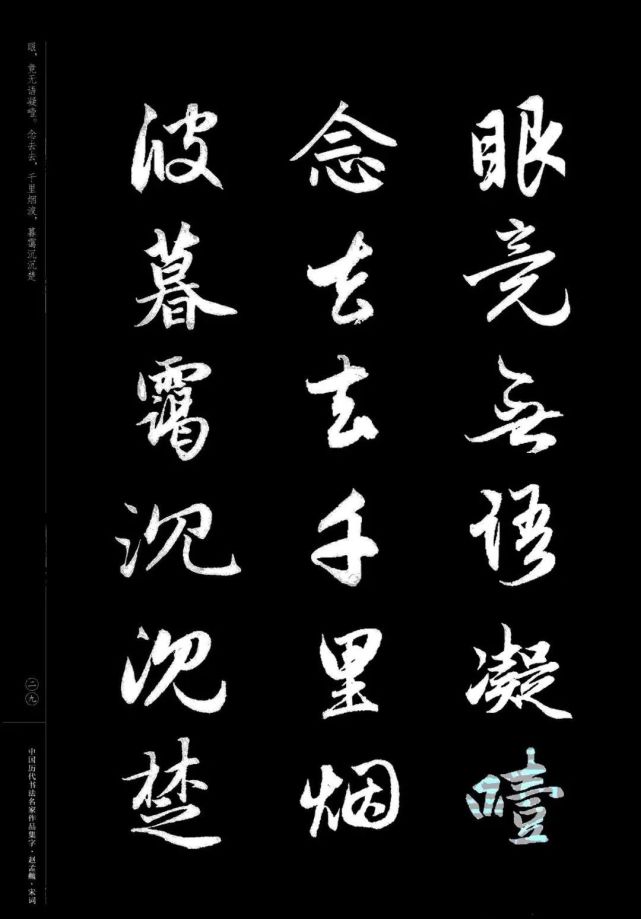 眼竟無語凝噎
念去去千里烟
波暮靄沉沉楚
眼，竟无语凝噎。念去去，千里烟波，暮霭沉沉楚
二九
中国历代书法名家作品集字·赵孟頫·宋词